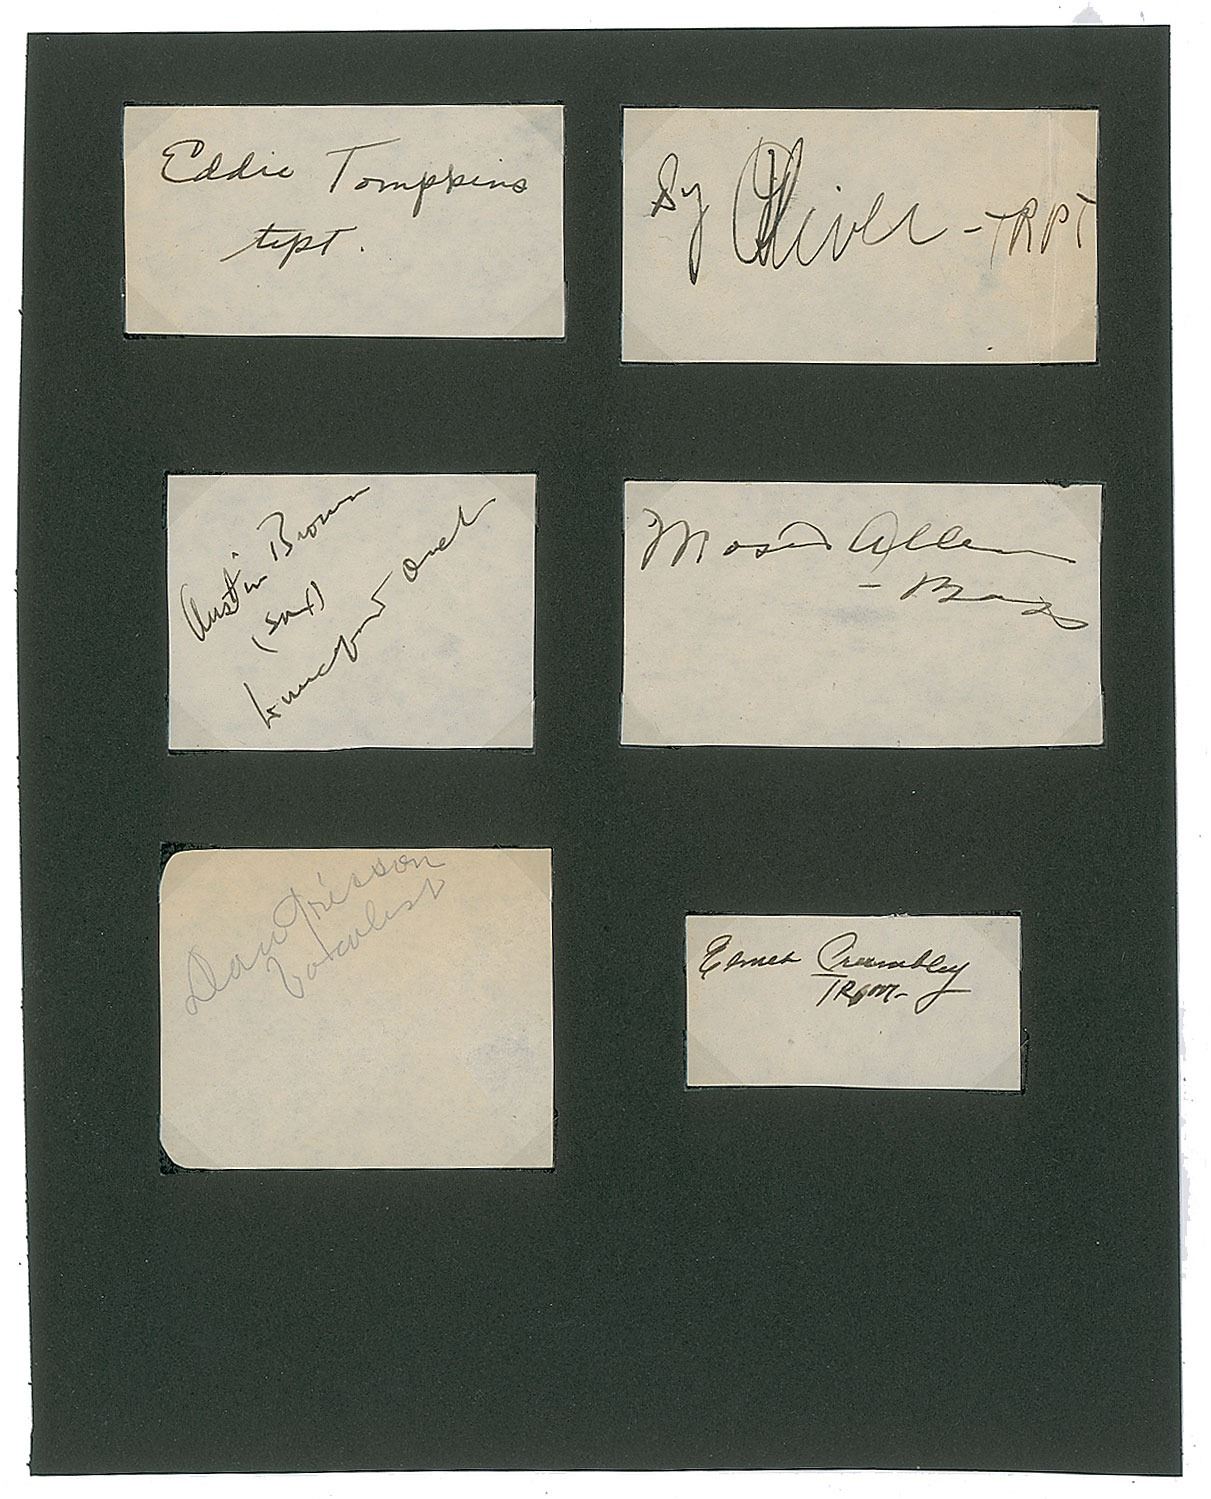 Eddie Tompkins
tpt.
Sy Oliver - TRPT
Austin Brown
(sax)
Lunceford Orch
Moses Allen
- Bass
Dan Grissom
Vocalist
Elmer Crumbley
TROM-